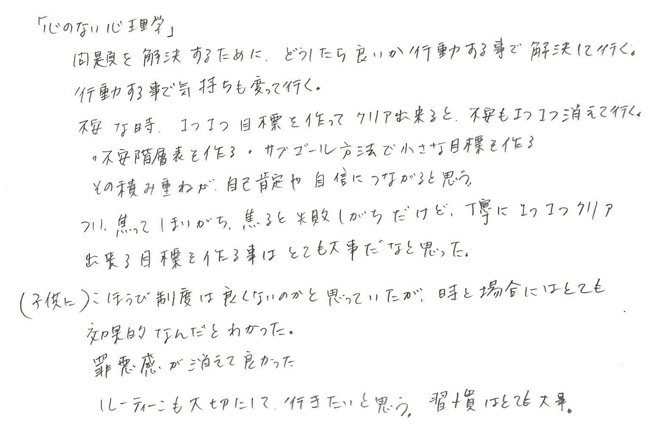 「心のない心理学」
問題を解決するために、どうしたら良いか行動する事で解決して行く。
行動する事で気持ちも変って行く。
不安な時、1つ1つ目標を作ってクリア出来ると、不安も1つ1つ消えて行く。
・不安階層表を作る・サブゴール方法で小さな目標を作る
その積み重ねが、自己肯定や自信につながると思う。
つい、焦ってしまいがち、焦ると失敗しがちだけど、丁寧に1つ1つクリア
出来る目標を作る事はとても大事だなと思った。
(子供に)ごほうび制度は良くないのかと思っていたが、時と場合にはとても
効果的なんだとわかった。
罪悪感が消えて良かった
ルーティーンも大切にして、行きたいと思う。習慣はとても大事。